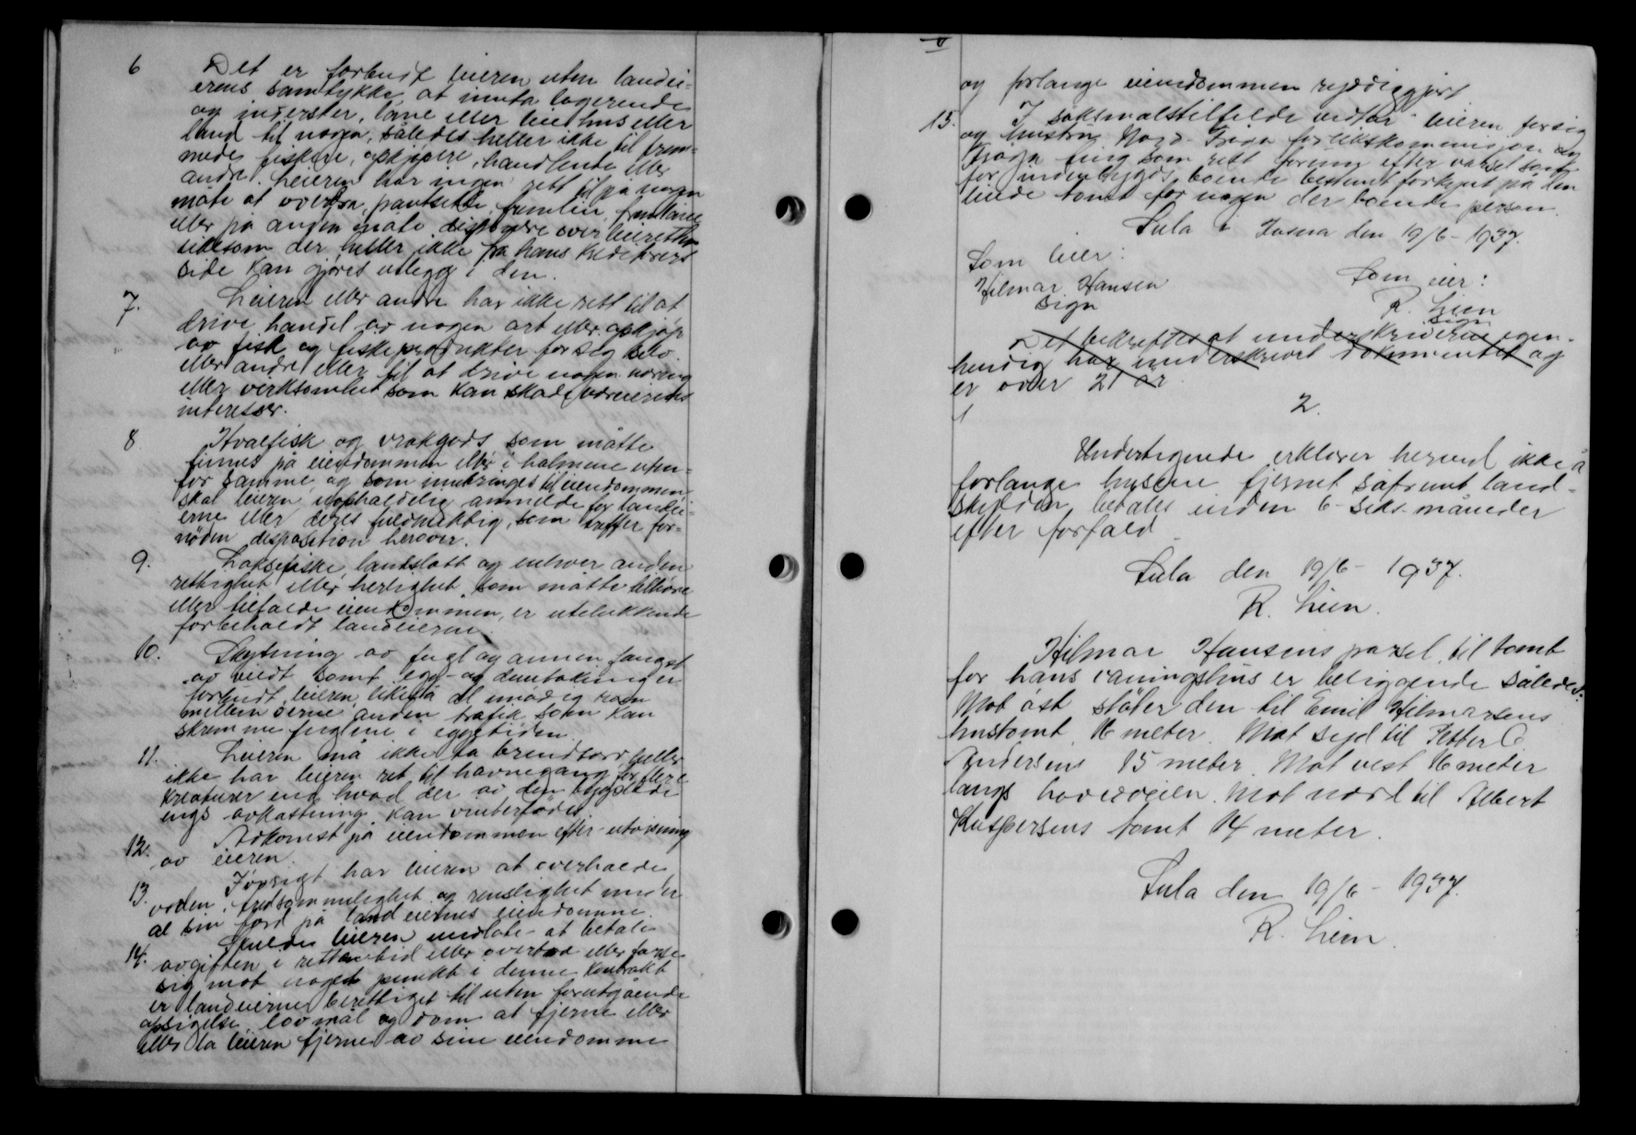 6 Det er forbudt leieren uten landei-
erens samtykke, at innta logerende
og inderster, låne eller leie hus eller
land til nogen, således heller ikke til frem-
mede fiskere, opkjøpere, handlende eller
andre. Leieren har ingen rett til på nogen
måte at overdra, pantsette fremleie, fremlåne
eller på anden måte disponere over leieretten
likesom der heller ikke fra hans kreditorers
side kan gjøres utlegg i den.
7. Leieren eller andre har ikke rett til at
drive handel av nogen art eller opkjøp
av fisk og fiskeprodukter for sig selv
eller andre eller til at drive nogen næring
eller verksomhet som kan skade væreierens
interesser.
8 Hvalfisk og vrakgods som måtte
finnes på eiendommen eller i holmene uten-
for samme, og som innbringes til eiendommen
skal leieren uopholdelig anmelde for landei-
erne eller deres fuldmektig, som treffer for-
nøden disposition herover.
9. Laksefiske, landslott og enhver anden
rettighet eller herlighet som måtte tilhøre
eller tilfalde eiendommen, er utelukkende
forbeholdt landeierne.
10. Skytning av fugl og annen fangst
av vildt samt egg- og duntaking er
forbudt leieren likeså al unødig roen
mellem øerne, anden trafik som kan
skremme fuglene i eggetiden.
11. Leieren må ikke ta brendtorv heller
ikke har leieren ret til havnegang for flere
kreaturer end hvad der av den bygslede
engs avkastning kan vinterfødes
12. Adkomst på eiendommen efter utvisning
av eieren.
13. Forøvrigt har leieren at overholde
orden, fredsommelighet og renslighet under
al sin ferd på landeiernes eiendomme.
14. Skulde leieren undlate at betale
avgiften i rettan tid eller overtræ eller forse
sig mot noget punkt i denne kontrakt
er landeierne berettiget til uten forutgående
opsigelse, lovmål og dom at fjerne eller
eller la leieren fjerne av sine eiendomme
og forlange eiendommen ryddiggjort
15. I søksmålstilfelde vedtar leieren for sig
og hustru Nord-Frøya forlikskommisjon og
ting som rett forening efter varsel som
for indenbygds boende bestemt forkynt på den
leiede tomt for nogen der boende person.
Sula i Fosna den 19/6-1937.
Som leier:
Hilmar Hansen
sign
Som eier:
R. Lien
sign
Det bekreftes at underskriverne egen-
hendig har underskrevet dokumentet og
er over 21 år
1 2.
Undertegnede erklærer herved ikke å
forlange husene fjernet såfremt land-
skylden betales inden 6-seks måneder
efter forfald
Sula den 19/6-1937.
R. Lien.
Hilmar Hansens parsel til tomt
for hans våningshus er beliggende således:
Mot øst støter den til Emil Hilmarsens
hustomt 16 meter. Mot syd til Petter C.
Andersens 15 meter. Mot vest 16 meter
langs hovedveien. Mot nord til Albert
Kaspersens tomt 14 meter.
Sula den 19/6-1937.
R. Lien.